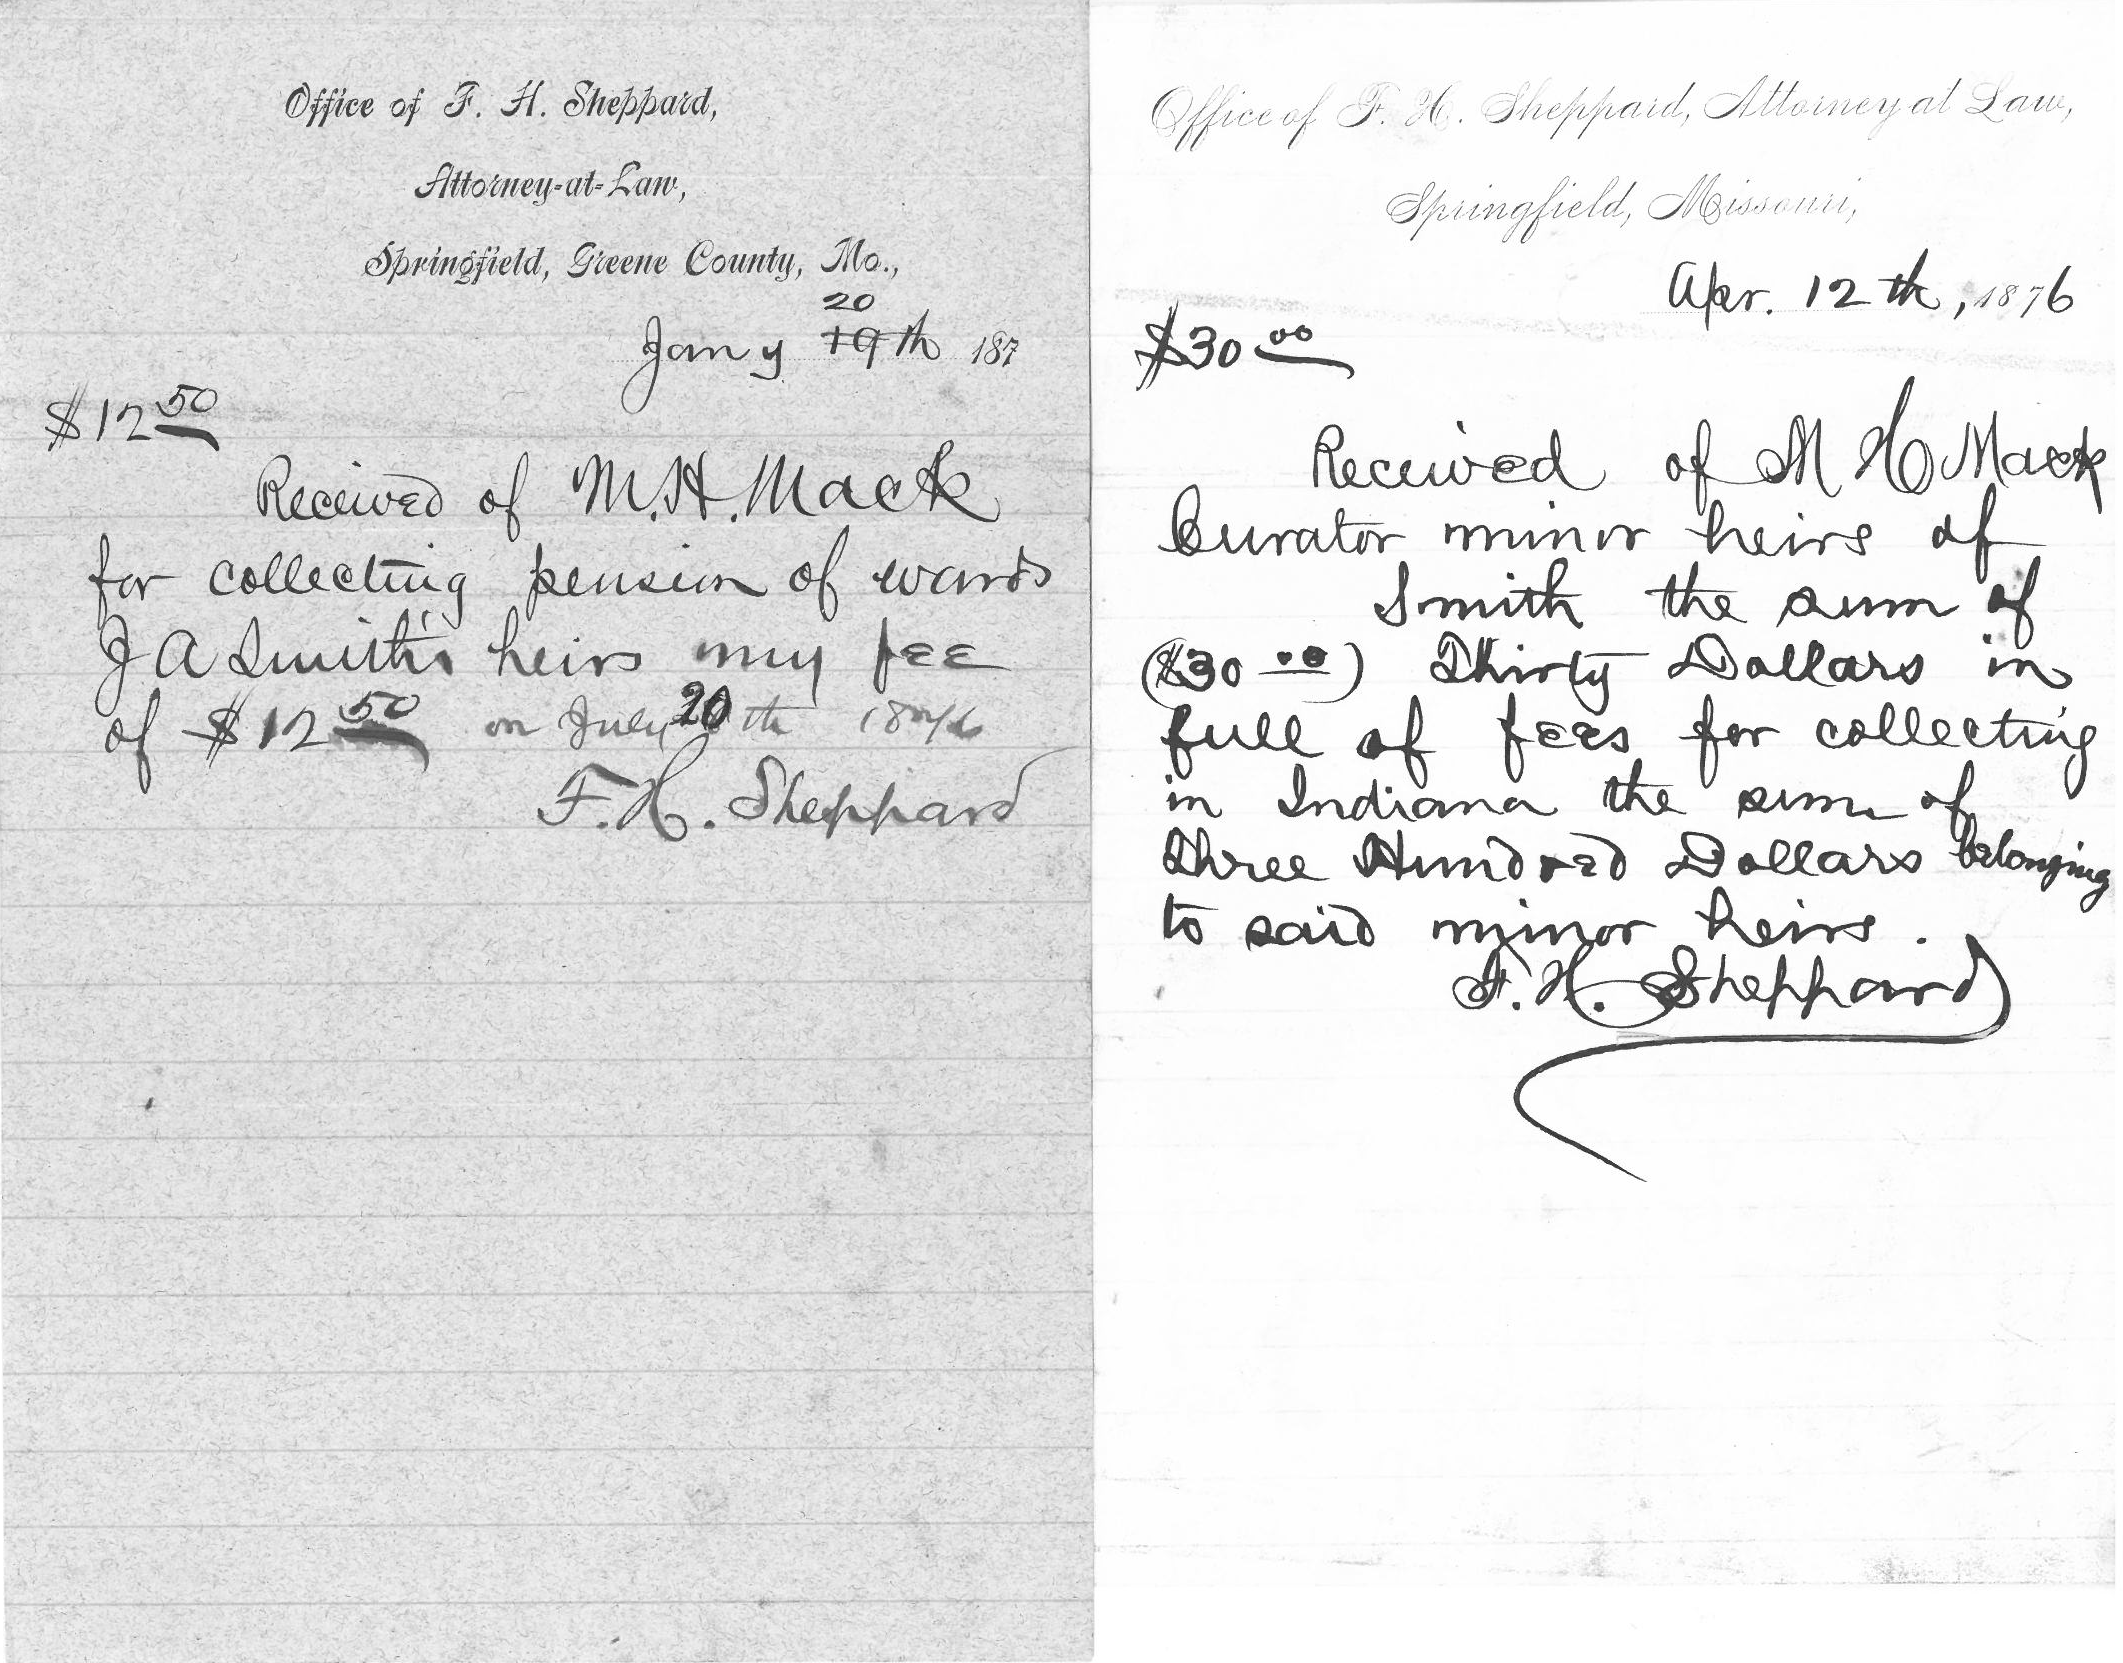 Office of F. H. Sheppard,
Attorney-at-Law,
Springfield, Greene County, Mo.,
20
Jany 19th 187
$12 50
Received of M.H. Mack
for collecting pension of wards
J A Smith's heirs my fee
of $12 50 on July 20 th 1876
F. H. Sheppard
Office of F. H. Sheppard, Attorney at Law,
Springfield, Missouri,
Apr. 12th, 1876
$30 00
Received of M H Mack
Curator minor heirs of
Smith the sum of
($30 00) Thirty Dollars in
full of fees for collecting
in Indiana the sum of
Three Hundred Dollars belonging
to said minor heirs.
F. H. Sheppard